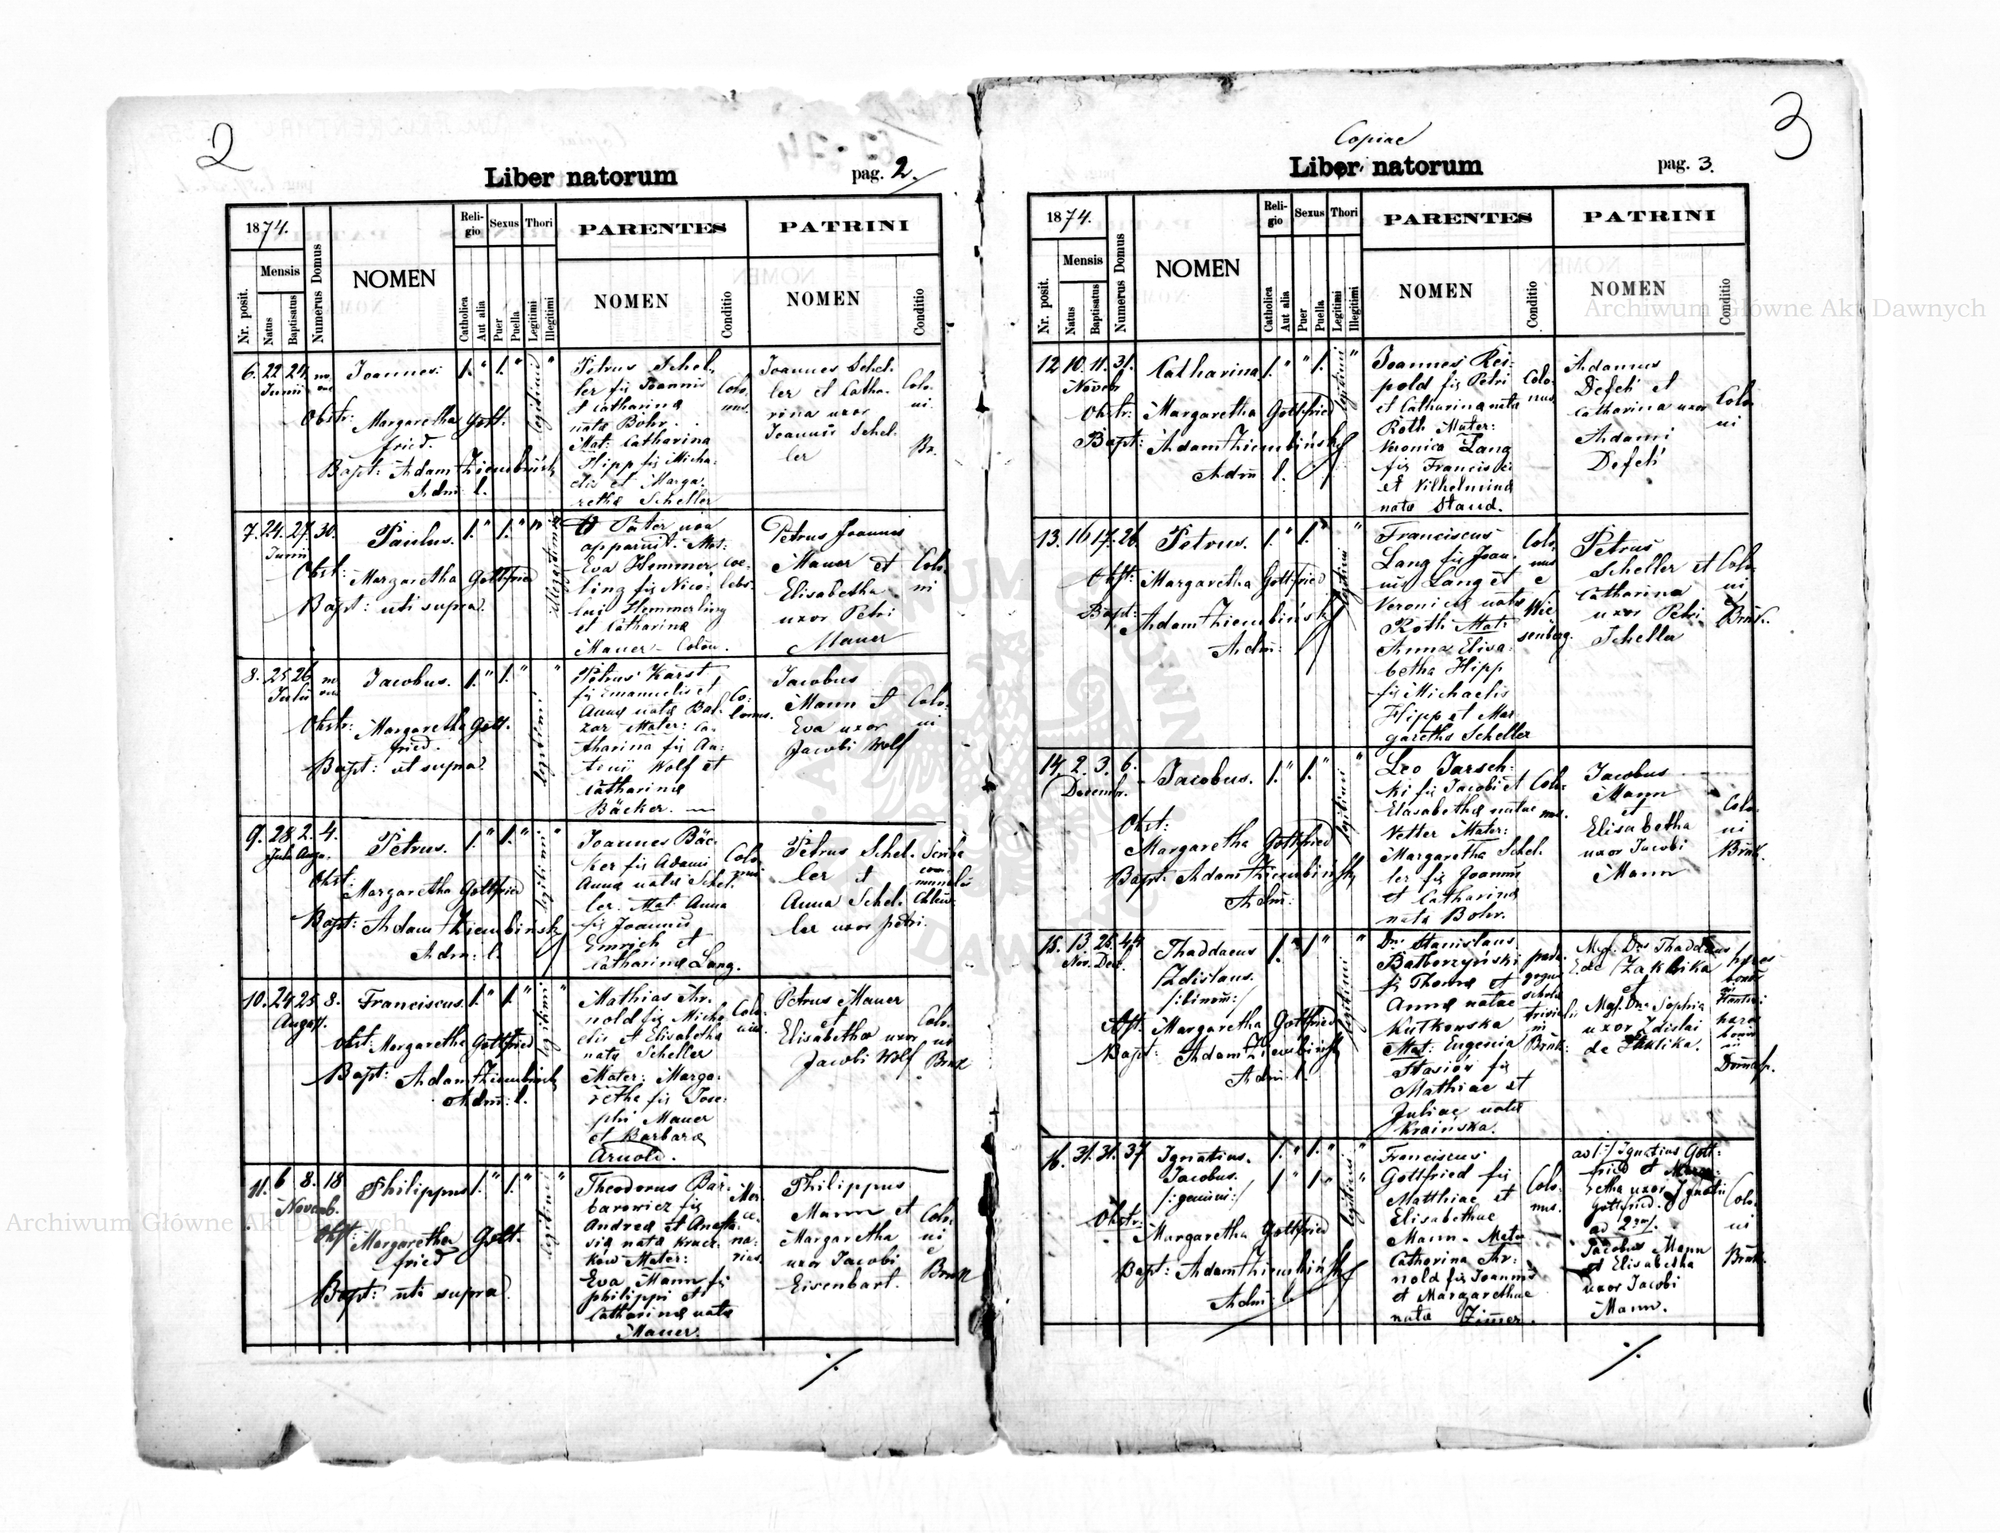 2
Liber natorum
pag. 2.
1874.
Nr. posit.
Mensis
Natus
Baptisatus
Numerus Domus
NOMEN
Religio
Catholica
Aut alia
Sexus
Puer
Puella
Thori
Legitimi
Illegitimi
PARENTES
NOMEN
Conditio
PATRINI
NOMEN
Conditio
6. 22 24
Junii
Joannes.
1. " 1. "
legitimi
Obstr: Margaretha Gott.
fried.
Bapt: Adam Ziembiński
Adm: l.
Petrus Schel.
ler fis Joannis
et Catharina
nata Bohr.
Mat: Catharina
Hipp fis Micha.
elis et Marga.
retha Scheller
Colo.
nus.
Joannes Schel.
ler et Catha.
rina uxor
Joannis Schel.
ler
Colo.
ni.
Br.
7. 24. 27. 30.
Junii
Paulus.
1. " 1. "
illegitimi
Obst: Margaretha Gottfried
Bapt: uti supra.
Pater non
apparuit. Mat:
Eva Hemmer
ling fis Nico:
lai Hemmerling
et Catharina
Mauer - Colon.
Coe.
lebs.
Petrus Joannis
Mauer et
Elisabetha
uxor Petri
Mauer
Colo.
ni
8. 25 26
Julii
Jacobus.
1. " 1. "
legitimi
Obstr: Margaretha Gott.
fried.
Bapt: ut supra.
Petrus Karst
fis Emanuelis et
Anna nata Bal.
zar Mater: Ca.
tharina fis An.
tonii Wolf et
Catharina
Bäcker.
Co.
lonus.
Jacobus
Mann et
Eva uxor
Jacobi Wolf
Colo.
ni
9. 28. 2. 4.
Juli Aug.
Petrus.
1. " 1. "
legitimi
Obst: Margaretha Gottfried
Bapt: Adam Ziembiński
Adm: l.
Joannes Bäc.
ker fis Adami
Anna nata Schel.
ler. Mat. Anna
fis Joannis
Emrich et
Catharina Lang.
Colo.
nus
Petrus Schel.
ler et
Anna Schel.
ler uxor petri.
Scriba
com
munalis
10. 24 25. 8.
August.
Franciscus.
1. " 1. "
legitimi
Obst: Margaretha Gottfried
Bapt: Adam Ziembiński
Adm: l.
Mathias Ar.
nold fis Micha
elis et Elisabetha
nata Scheller
Mater: Marga.
retha fis Jose.
phi Mauer
et Barbara
Arnold.
Colo.
nus.
Petrus Mauer
et
Elisabetha uxor
Jacobi Wolf
Colo.
ni
11. 6 8. 18
Novemb.
Philippus
1. " 1. "
legitimi
Obst: Margaretha Gott.
fried
Bapt: uti supra.
Theodorus Bar.
barowicz fis
Andrea et Anasta
sia nata Kracz.
kow Mater:
Eva Mann fis
philippi et
Catharina nata
Mauer.
Mer.
ce.
na.
rius.
Philippus
Mann et
Margaretha
uxor Jacobi
Eisenbart.
Colo.
ni
3
Copiae
Liber natorum
pag. 3.
1874.
Nr. posit.
Mensis
Natus
Baptisatus
Numerus Domus
NOMEN
Religio
Catholica
Aut alia
Sexus
Puer
Puella
Thori
Legitimi
Illegitimi
PARENTES
NOMEN
Conditio
PATRINI
NOMEN
Conditio
12 10. 11. 31.
Novebr
Catharina
1. " " 1.
legitimi
Obstr: Margaretha Gottfried
Bapt: Adam Ziembiński
Adm: l.
Joannes Rei.
pold fis Petri
et Catharina nata
Roth Mater:
Veronica Lang
fis Francisci
et Vilhelmina
nata Staud.
Colo.
nus
Adamus
Dech et
Catharina uxor
Adami
Dech
Colo.
ni
13. 16 17. 26.
Petrus.
1. " 1. "
legitimi
Obst: Margaretha Gottfried
Bapt: Adam Ziembiński
Adm:
Franciscus
Lang fis Joan.
nis Lang et
Veronica nata
Roth Mat:
Anna Elisa.
betha Hipp
fis Michaelis
Hipp et Mar.
garetha Scheller
Colo.
nus
e
Wie
senberg.
Petrus
Scheller et
Catharina
uxor Petri
Scheller
Colo.
ni
14. 2. 3. 6.
Decembr.
Jacobus.
1. " 1. "
legitimi
Obst:
Margaretha Gottfried
Bapt: Adam Ziembiński
Adm:
Leo Jarsch.
ki fis Jacobi et
Elisabetha natae
Vetter Mater:
Margaretha Schel.
ler fis Joannis
et Catharina
nata Bohr.
Colo.
nus.
Jacobus
Mann
et
Elisabetha
uxor Jacobi
Mann
Colo.
ni
15. 13. 25. 44.
Nov. Dec.
Thaddaeus
Zdislaus.
/:binom:/
1. " 1. "
legitimi
Obst. Margaretha Gottfried
Bapt: Adam Ziembiński
Adm: l.
Dns Stanislaus
Bathorzyński
fis Thoma et
Anna natae
Kutkowska
Mat: Eugenia
Stasiów fis
Mathiae et
Juliae nata
Kraińska.
peda
gogus
schola
trivialis
Mgf. Dns Thaddaeus
de Zaklika
et
Mgf. Dna Sophia
uxor Zdislai
de Zaklika.
16. 31. 31. 37
Ignatius.
Jacobus.
/:gemini:/
1. " 1. "
1 " 1. "
legitimi
Obstr:
Margaretha Gottfried
Bapt: Adam Ziembiński
Adm: l.
Franciscus
Gottfried fis
Matthiae et
Elisabethae
Mann - Mater
Catharina Ar.
nold fis Joannis
et Margarethae
nata Zimer.
Colo.
nus.
ad 1:/ Ignatius Gott.
fried et Marga.
retha uxor Ignatii
Gottfried.
ad 2dum/.
Jacobus Mann
et Elisabetha
uxor Jacobi
Mann.
Colo.
ni
Archiwum Główne Akt Dawnych
Archiwum Główne Akt Dawnych